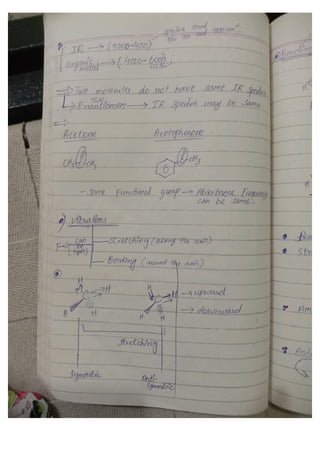 IR → (4000-400)
organic → (4000-
metal
⇒ Two molecules do not have same IR spectra
Two
Enantiomers → IR spectra may be same.
⇒
Acetone Acetophenone.
O O
CH3 C CH3 C CH3
6
- some functional group → Absorbance frequency
can be same.
Vibrations
can
be
(2 types)
Stretching (along the axis)
Bending (around the axis)
H H H H
→ upward
C C
→ downward
H H H
Stretching
Symmetric Anti-
symmetric
H
H